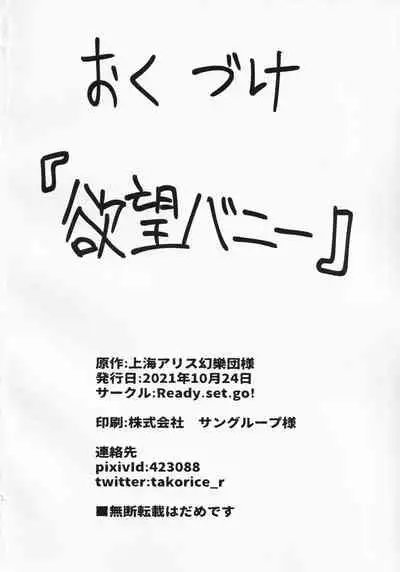 おくづけ
『欲望バニー』
原作:上海アリス幻樂団様
発行日:2021年10月24日
サークル:Ready.set.go!
印刷:株式会社　サングループ様
連絡先
pixivId:423088
twitter:takorice_r
■無断転載はだめです